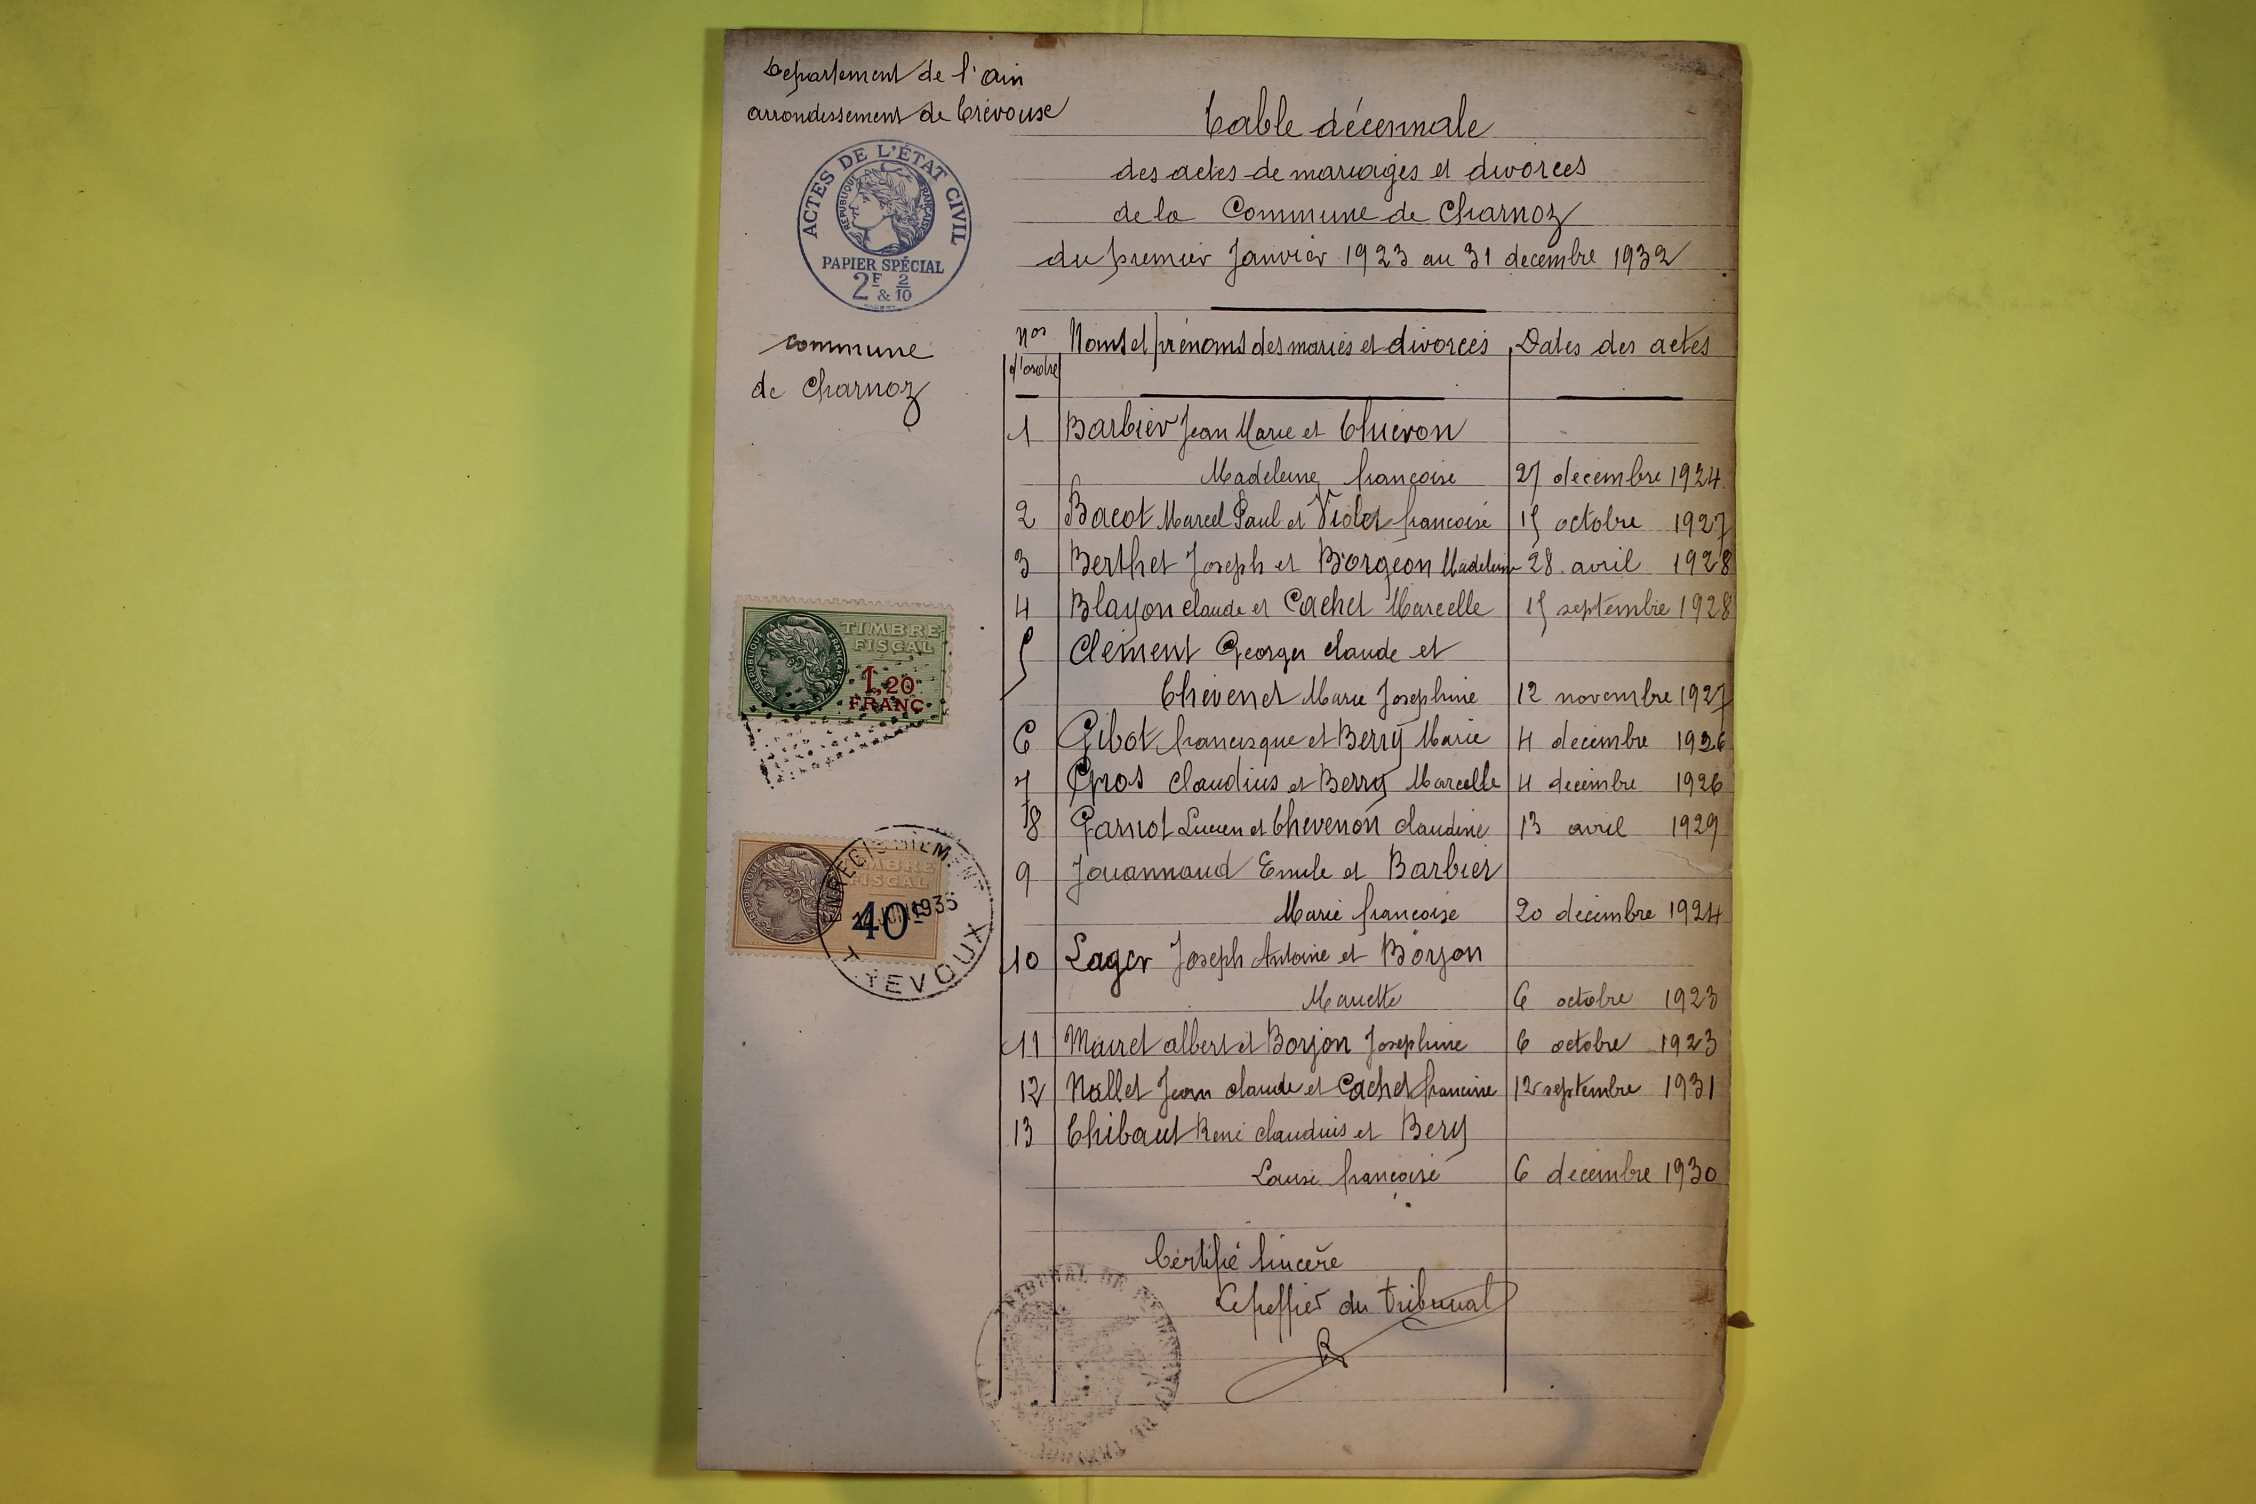 Departement de l'ain
arrondissement de Trévoux
Table décennale
des actes de mariages et divorces
de la Commune de Charnoz
du premier Janvier 1923 au 31 decembre 1932
ACTES DE L'ÉTAT CIVIL
RÉPUBLIQUE FRANÇAISE
PAPIER SPÉCIAL
2F & 2/10
commune
de Charnoz
Nos d'ordre Noms et prénoms des mariés et divorcés Dates des actes
1 Barbier Jean Marie et Thiévon
Madeleine françoise 27 decembre 1924
2 Bacot Marcel Paul et Violet francoise 15 octobre 1927
3 Berthet Joseph et Borgeon Madeleine 28 avril 1928
4 Blayon claude et Cachet Marcelle 15 septembre 1928
5 Clément Georges claude et
Thévenet Marie Josephine 12 novembre 1927
6 Gibot francisque et Berry Marie 4 decembre 1926
7 Gros claudius et Berry Marcelle 4 decembre 1926
8 Garnot Lucien et Thévenon claudine 13 avril 1929
9 Jouannaud Emile et Barbier
Marie francoise 20 decembre 1924
10 Lager Joseph Antoine et Borjon
Mariette 6 octobre 1923
11 Mairet albert et Borjon Josephine 6 octobre 1923
12 Nallet Jean claude et Cachet francine 12 septembre 1931
13 Thibaut René claudius et Bery
Louise francoise 6 decembre 1930
Certifié sincère
Le greffier du tribunal
RÉPUBLIQUE FRANÇAISE
TIMBRE
FISCAL
1,20
FRANC
TIMBRE
FISCAL
40c
ENREGISTREMENT
1935
TREVOUX
TRIBUNAL DE